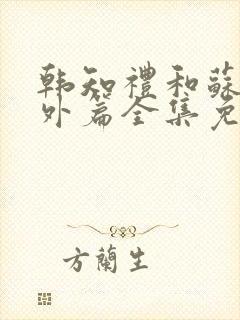 韩知禮和蘇
外篇全集免
方蘭生